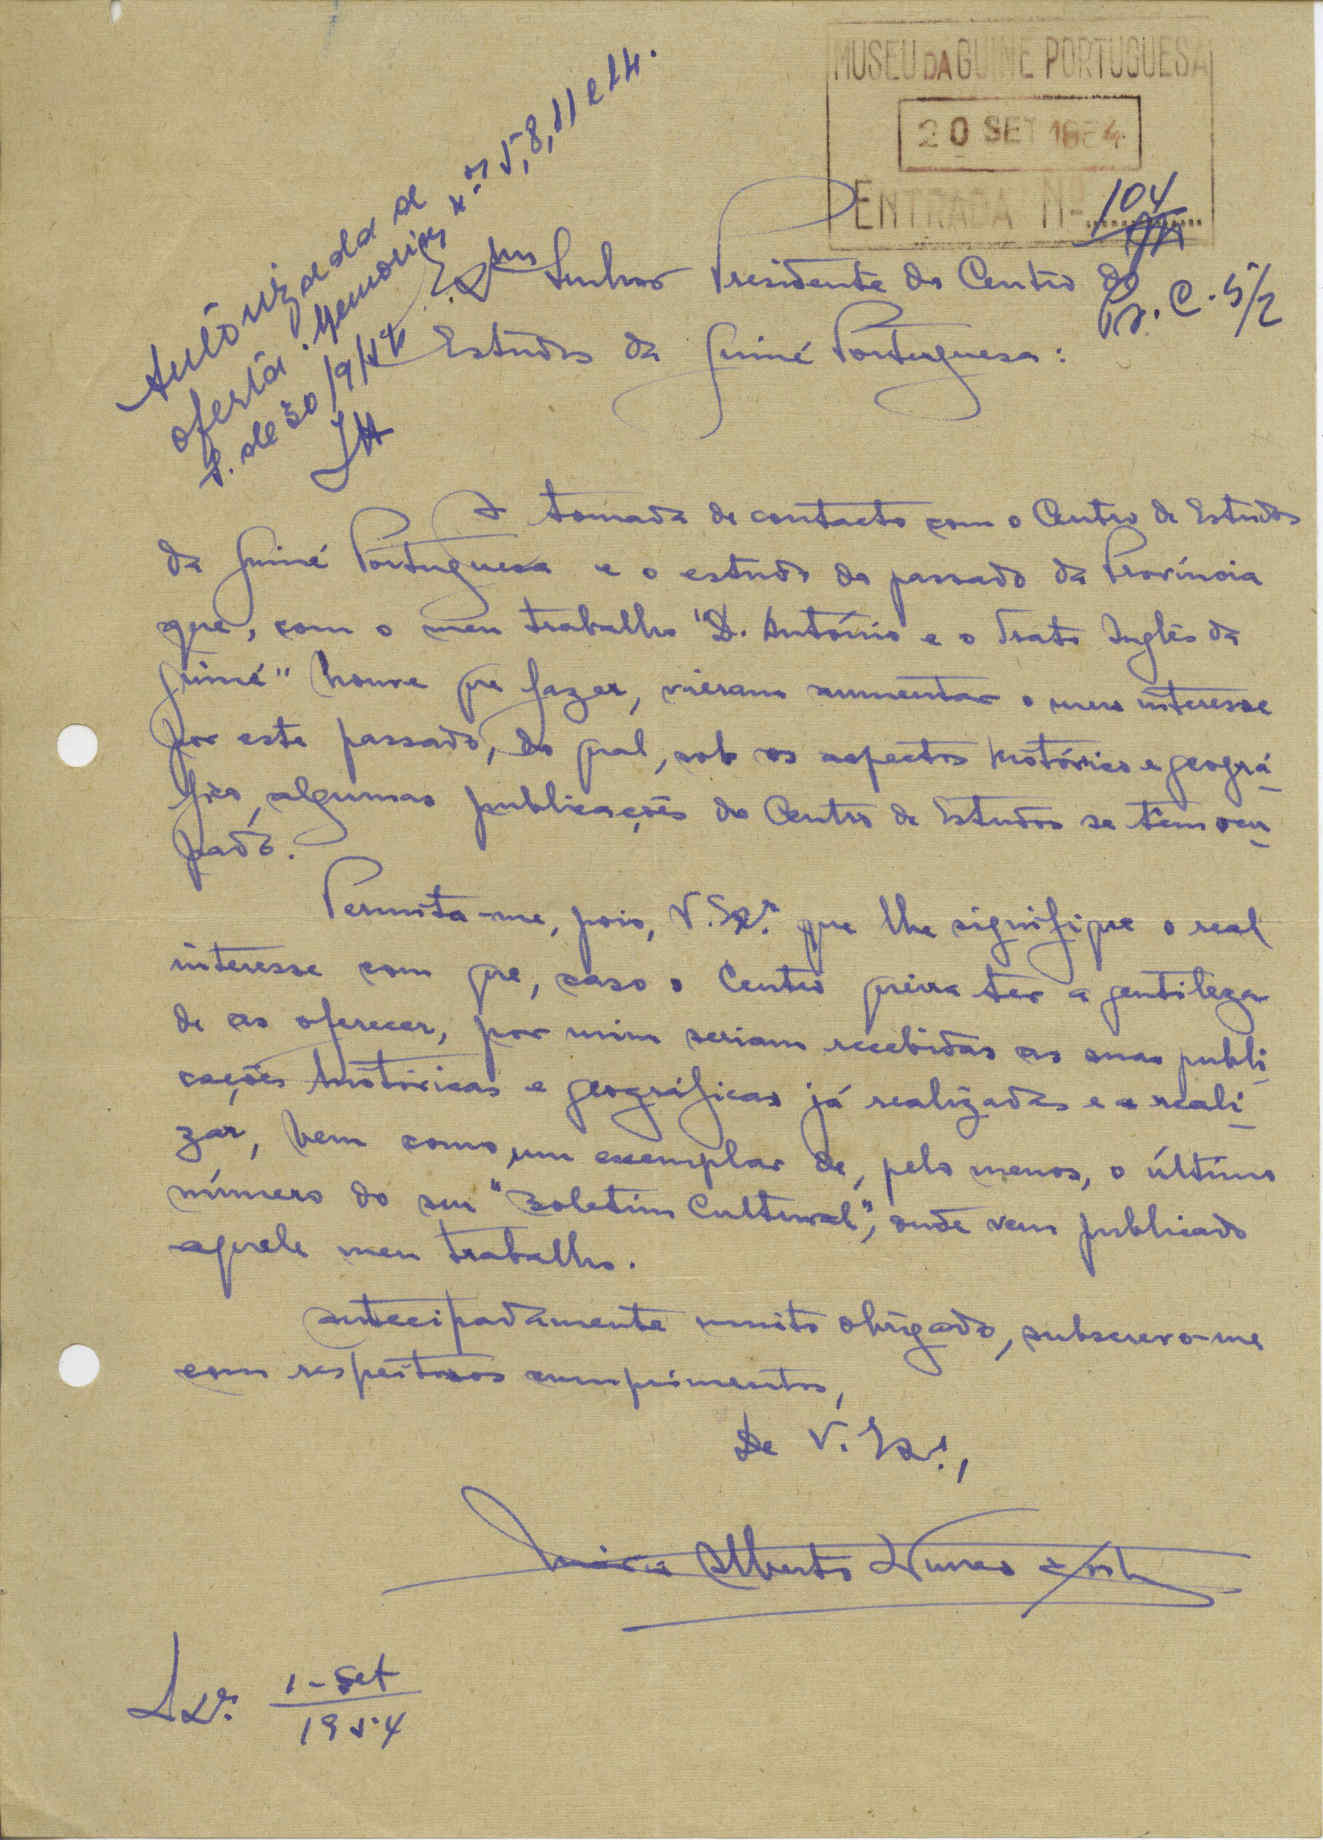 MUSEU DA GUINÉ PORTUGUESA
20 SET 1954
ENTRADA Nº 104
Pr. C. 5/2
Autorizada a
oferta. Memórias n.os 5, 8, 11 e 14.
B. de 30/9/54
Exmo Senhor Presidente do Centro de
Estudos da Guiné Portuguesa:
A tomada de contacto com o Centro de Estudos
da Guiné Portuguesa e o estudo do passado da Província
que, com o meu trabalho "D. António e o Trato Inglês da
Guiné" houve que fazer, vieram aumentar o meu interesse
por este passado, do qual, sob os aspectos histórico e geográ-
fico, algumas publicações do Centro de Estudos se têm ocu-
pado.
Permita-me, pois, V. Ex.ª que lhe signifique o real
interesse com que, caso o Centro queira ter a gentileza
de as oferecer, por mim seriam recebidas as suas publi-
cações históricas e geográficas já realizadas e a reali-
zar, bem como um exemplar de, pelo menos, o último
número do seu "Boletim Cultural", onde vem publicado
aquele meu trabalho.
Antecipadamente muito obrigado, subscrevo-me
com respeitosos cumprimentos,
De V. Ex.ª,
Mário Alberto Nunes Costa
Lx.ª 1-Set
1954